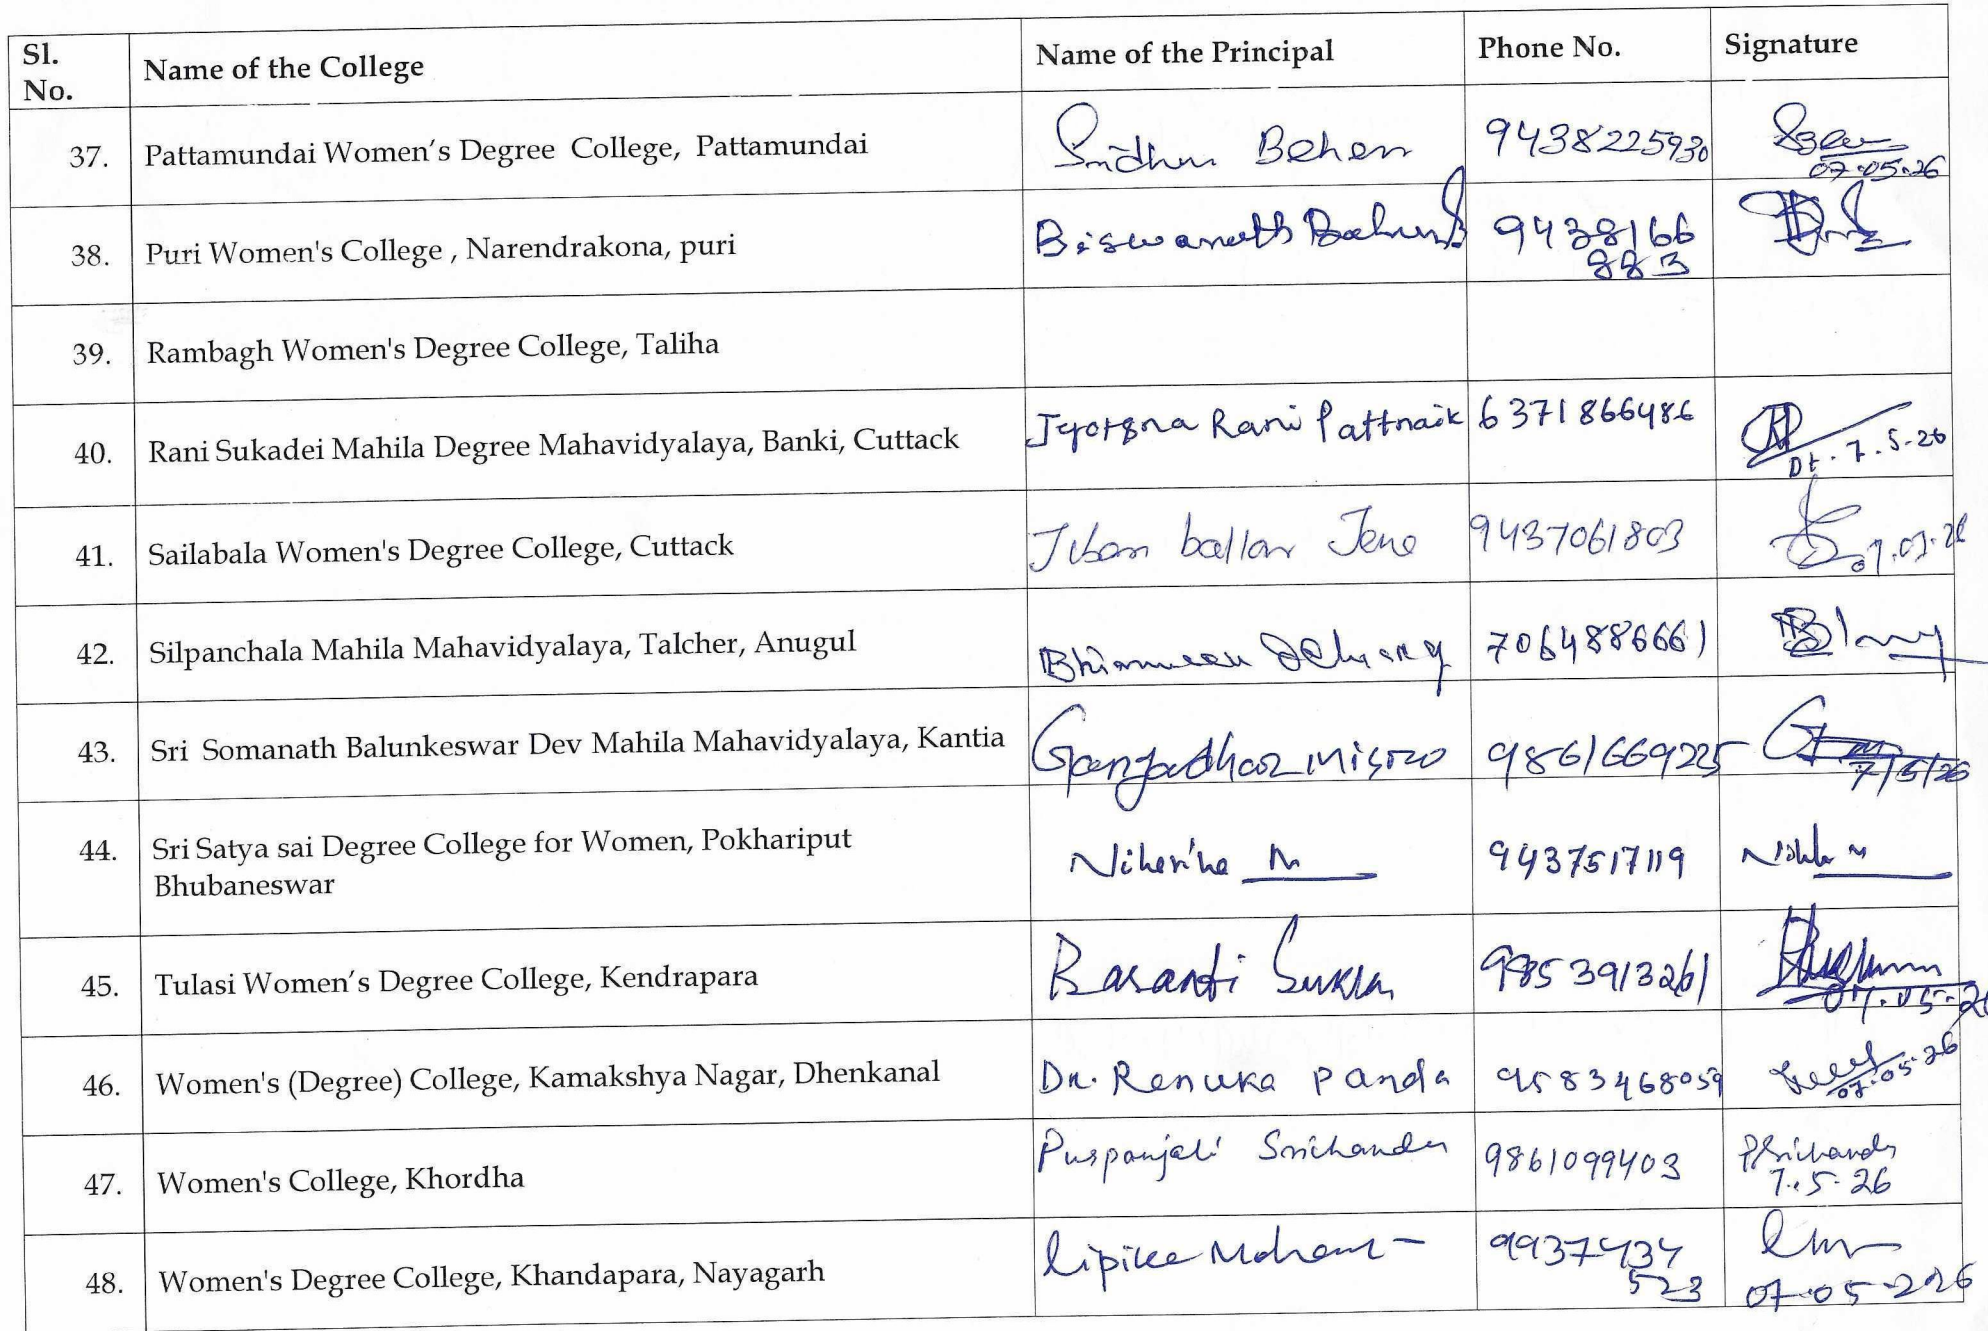 Sl. No. Name of the College Name of the Principal Phone No. Signature
37. Pattamundai Women's Degree College, Pattamundai Behera 9438225930
07.05.26
38. Puri Women's College , Narendrakona, puri Biswanath 9438166
883
39. Rambagh Women's Degree College, Taliha
40. Rani Sukadei Mahila Degree Mahavidyalaya, Banki, Cuttack Jyotsna Rani Pattnaik 6371866486
Dt. 7.5.26
41. Sailabala Women's Degree College, Cuttack Jena 9437061803
42. Silpanchala Mahila Mahavidyalaya, Talcher, Anugul 7064886661
43. Sri Somanath Balunkeswar Dev Mahila Mahavidyalaya, Kantia Gangadhar Misro 9861669225
7/5/26
44. Sri Satya sai Degree College for Women, Pokhariput 9437517119
Bhubaneswar
45. Tulasi Women's Degree College, Kendrapara Basanti 9853913261
07.05.26
46. Women's (Degree) College, Kamakshya Nagar, Dhenkanal Dr. Renuka Panda 9583468059
07.05.26
47. Women's College, Khordha Puspanjali Srichandan 9861099403
7.5.26
48. Women's Degree College, Khandapara, Nayagarh 9937434
523